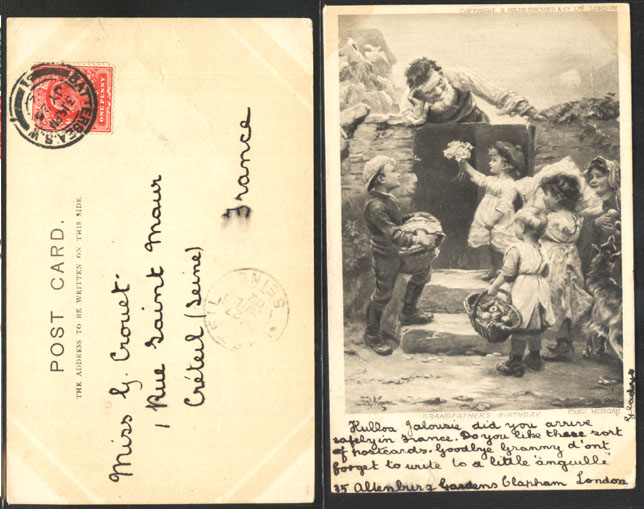 POST CARD.
THE ADDRESS TO BE WRITTEN ON THIS SIDE
ONE PENNY
BATTERSEA.S.W.
Miss G. Crouet.
1 Rue Saint Maur
Créteil (Seine)
France
COPYRIGHT & CO LTD LONDON
GRANDFATHER'S BIRTHDAY
FRED MORGAN
Hulloa Jalousie did you arrive
safely in France. Do you like these sort
of postcards. Goodbye Granny d'ont
forget to write to a little "anguille"
35 Altenburg Gardens Clapham London
Gladys